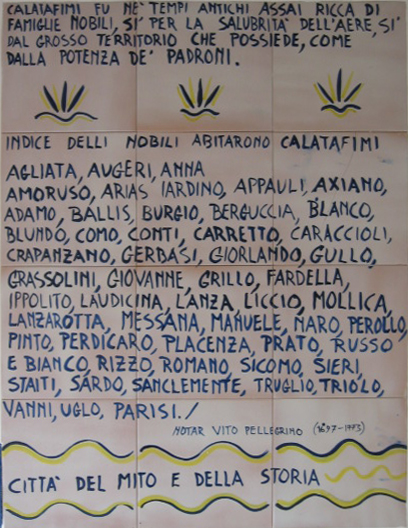 CALATAFIMI FU NE' TEMPI ANTICHI ASSAI RICCA DI
FAMIGLIE NOBILI, SI' PER LA SALUBRITA' DELL'AERE, SI'
DAL GROSSO TERRITORIO CHE POSSIEDE, COME
DALLA POTENZA DE' PADRONI.
INDICE DELLI NOBILI ABITARONO CALATAFIMI
AGLIATA, AUGERI, ANNA
AMORUSO, ARIAS IARDINO, APPAULI, AXIANO,
ADAMO, BALLIS, BURGIO, BERGUCCIA, BLANCO,
BLUNDO, COMO, CONTI, CARRETTO, CARACCIOLI,
CRAPANZANO, GERBASI, GIORLANDO, GULLO,
GRASSOLINI, GIOVANNE, GRILLO, FARDELLA,
IPPOLITO, LAUDICINA, LANZA, LICCIO, MOLLICA,
LANZAROTTA, MESSANA, MANUELE, NARO, PEROLLO,
PINTO, PERDICARO, PLACENZA, PRATO, RUSSO
E BIANCO, RIZZO, ROMANO, SICOMO, SIERI,
STAITI, SARDO, SANCLEMENTE, TRUGLIO, TRIOLO,
VANNI, UGLO, PARISI./
NOTAR VITO PELLEGRINO
CITTA' DEL MITO E DELLA STORIA